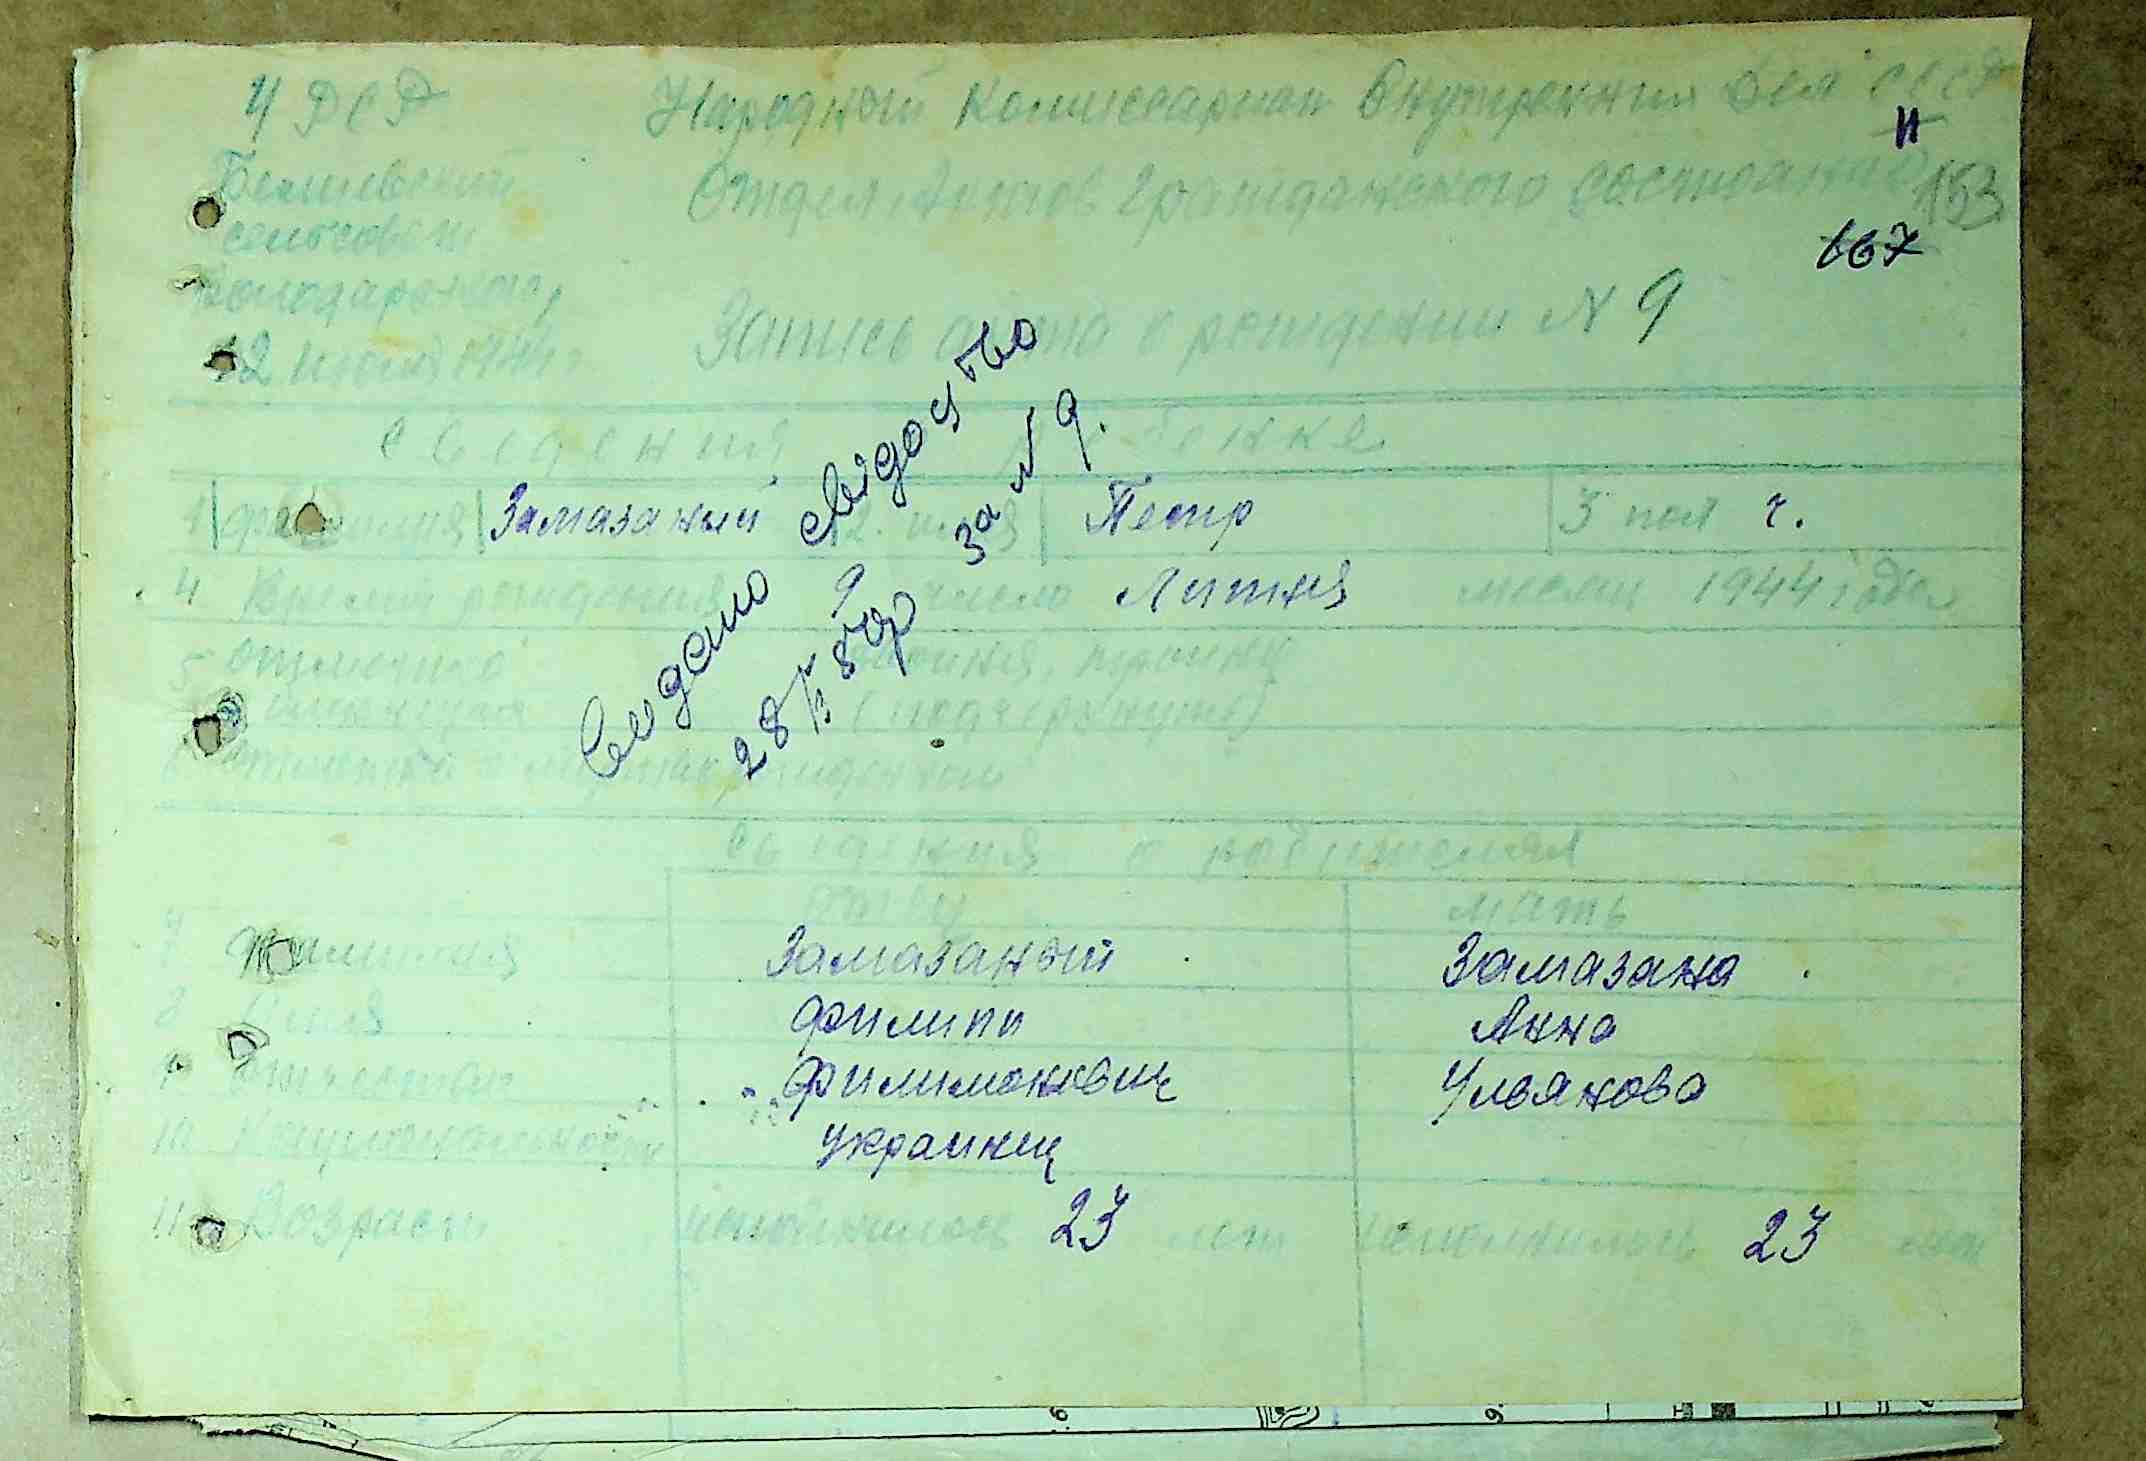 УРСР Народный Комиссариат Внутренних Дел СССР
11
сельсовет Отдел Актов Гражданского состояния 153
167
12 1944 г. Запись акта о рождении N 9
Сведения о ребенке
1 фамилия Замазаный 2. имя Петр 3 пол ч.
4 Время рождения 9 число Липня месяц 1944 года
5 двойня, тройня
(подчеркнуть)
6
Видано свідоцтво
28 58 за N 9.
Сведения о родителях
Отец мать
7 Фамилия Замазаный Замазана
8 Имя Филипп Анна
9 Отчество Филимонович Ульянова
10 Национальность украинец
11 Возраст исполнилось 23 лет исполнилось 23 лет